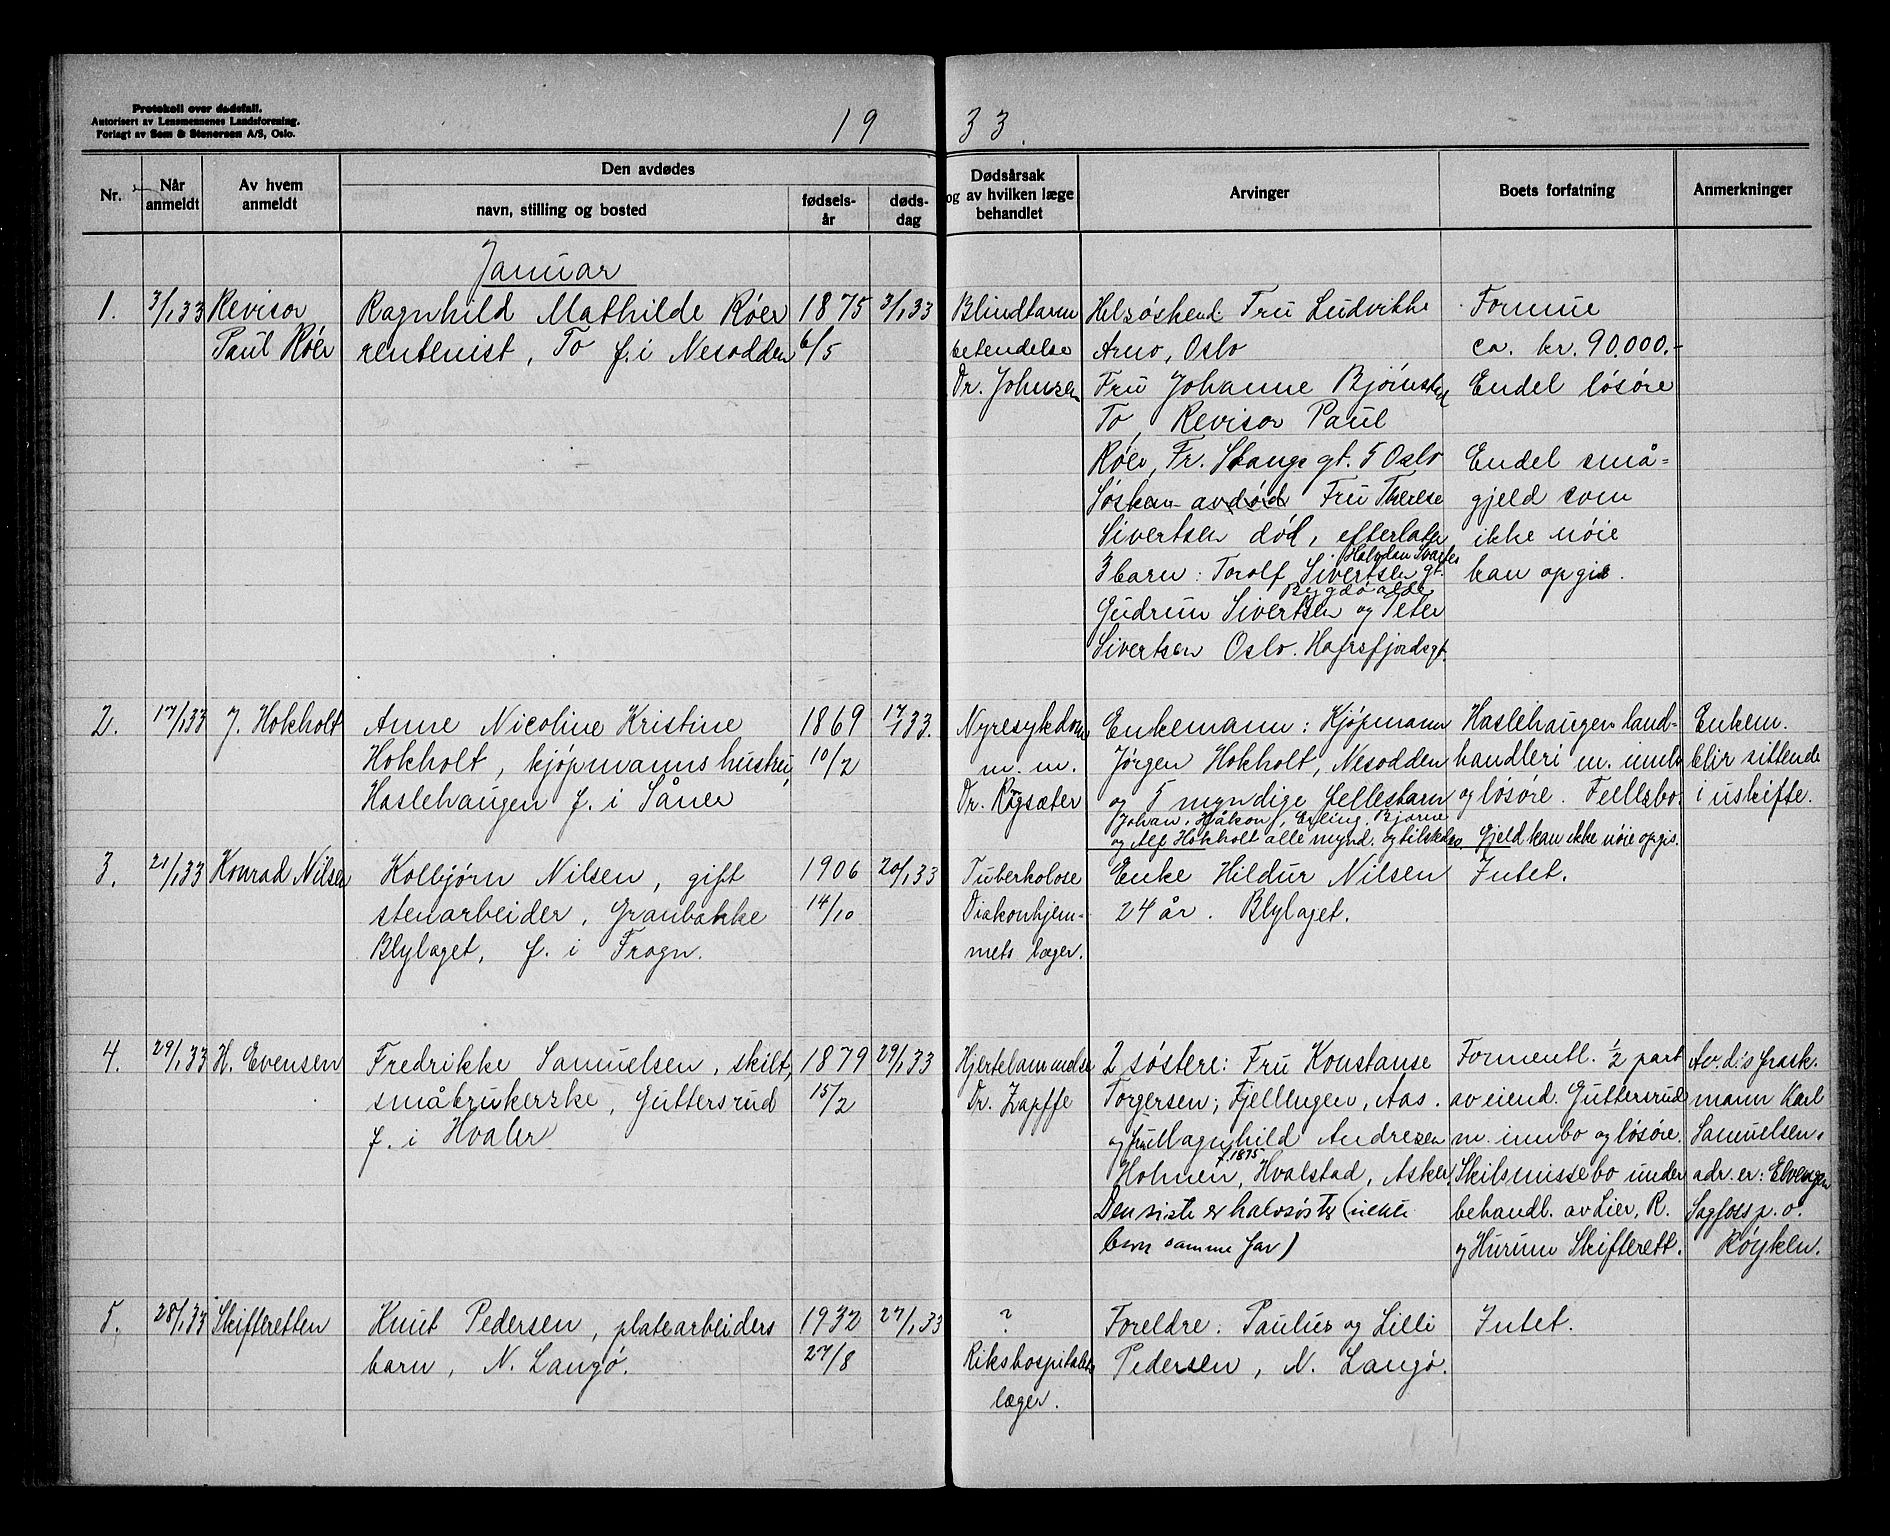 Protokoll over dødsfall.
Autorisert av Lensmennenes Landsforening.
Forlagt av Sem & Stenersen A/S, Oslo.
19 33.
Nr.
Når anmeldt
Av hvem anmeldt
Den avdødes
navn, stilling og bosted
fødselsår
dødsdag
Dødsårsak og av hvilken læge behandlet
Arvinger
Boets forfatning
Anmerkninger
Januar
1.
3/1 33
Revisor
Paul Røer
Ragnhild Mathilde Røer
rentenist, To f. i Nesodden
1875
6/5
3/1 33
Blindtarm
betendelse
Dr. Johnsen
Helsøskend. Fru Ludvikke
Arno, Oslo
Fru Johanne Bjørnstad
To, Revisor Paul
Røer, Fr. Stangs gt. 5 Oslo
Søsken avdød Fru Therese
Sivertsen død, efterlater
Halvdan Svartes
3 barn: Torolf Sivertsen gt.
Bygdø alde
Gudrun Sivertsen og Peter
Sivertsen Oslo. Hafrsfjordsgt.
Formue
ca. kr. 90.000.-
Endel løsøre
Endel små-
gjeld som
ikke nøie
kan opgis.
2.
17/1 33
J. Hokholt
Anne Nicoline Kristine
Hokholt, kjøpmanns hustru,
Haslehaugen f. i Såner
1869
10/2
17/1 33.
Nyresykdom
m. m.
Dr. Rogsæter
Enkemann: Kjøpmann
Jørgen Hokholt, Nesodden
og 5 myndige fellesbarn
Johan, Håkon, Erling, Bjarne
og Alf Hokholt alle mynd. og tilstede
Haslehaugen land-
handleri m. innb
og løsøre. Fellesbo.
Gjeld kan ikke nøie opgis.
Enkem.
blir sittende
i uskifte.
3.
21/1 33
Konrad Nilsen
Kolbjørn Nilsen, gift
stenarbeider, Granbakke
Blylaget, f. i Frogn.
1906
14/10
20/1 33
Tuberkolose
Diakonhjem-
mets læger.
Enke Hildur Nilsen
24 år. Blylaget.
Intet.
4.
29/1 33
H. Evensen
Fredrikke Samuelsen, skilt,
småbrukerske, Guttersrud
f. i Hvaler
1879
15/2
29/1 33
Hjertelammelse
Dr. Zapffe
2 søstere: Fru Konstanse
Torgersen, Fjellngen, Aas.
og fru Magnhild Andresen
f. 1875
Holmen, Hvalstad, Asker,
Den siste er halvsøster (ikke
barn samme far)
Formentl. 1/2 part
av eiend. Guttersrud
m. innbo og løsøre.
Skilsmissebo under
behandl. av Lier, R.
og Hurum Skifterett.
Av.d.'s frask.
mann Karl
Samuelsen.
adr. er: Elvengen
Sagfoss p. o.
Røyken.
5.
28/1 33
Skifteretten
Knut Pedersen, platearbeiders
barn, N. Langø.
1932
27/8
27/1 33
?
Rikshospitalets
læger.
Foreldre: Paulus og Lilli
Pedersen, N. Langø.
Intet.